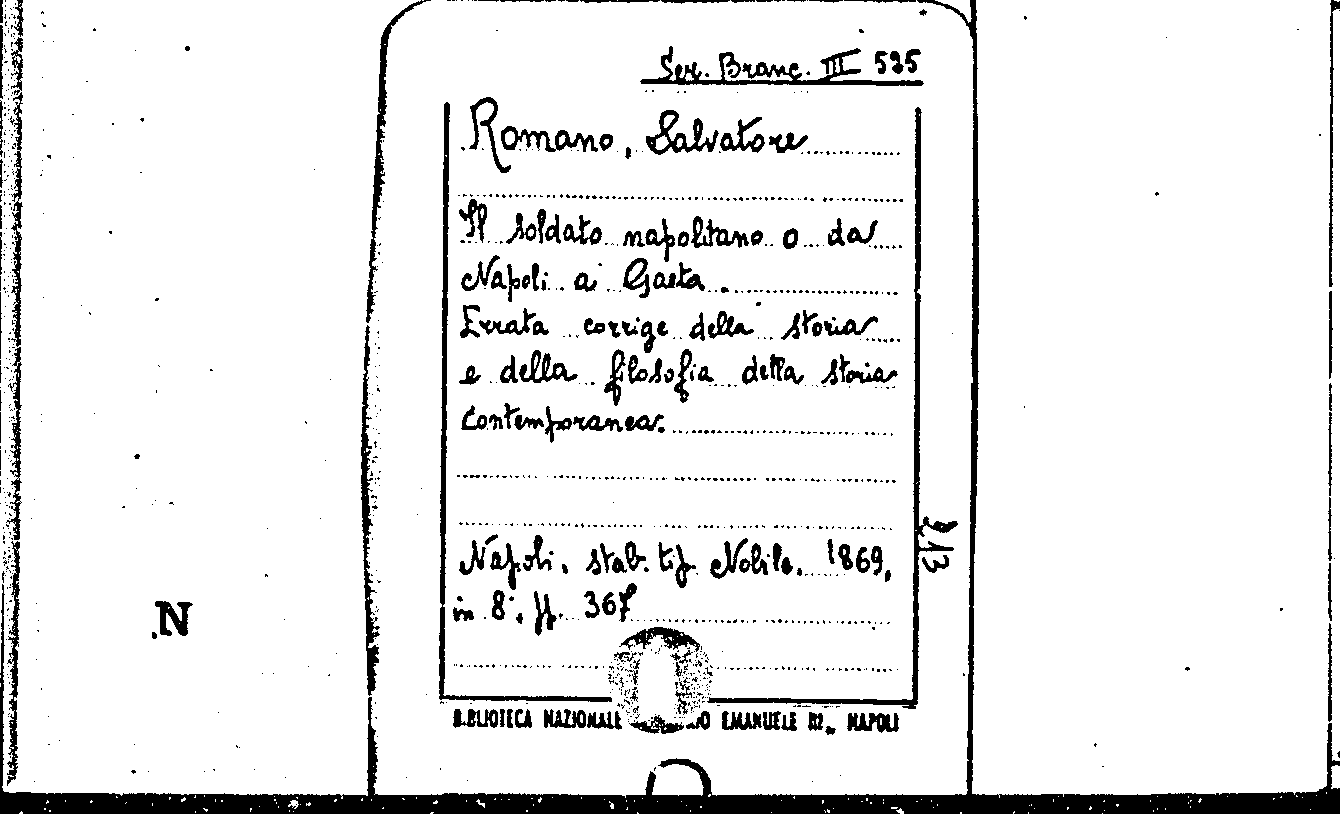 Ser. Branc. III 535
Romano, Salvatore
Il soldato napolitano o da
Napoli a Gaeta.
Errata corrige della storia
e della filosofia della storia
contemporanea.
Napoli. stab. tip. Nobile. 1869,
in 8°. pp. 367
BIBLIOTECA NAZIONALE EMANUELE III„ NAPOLI
213
N